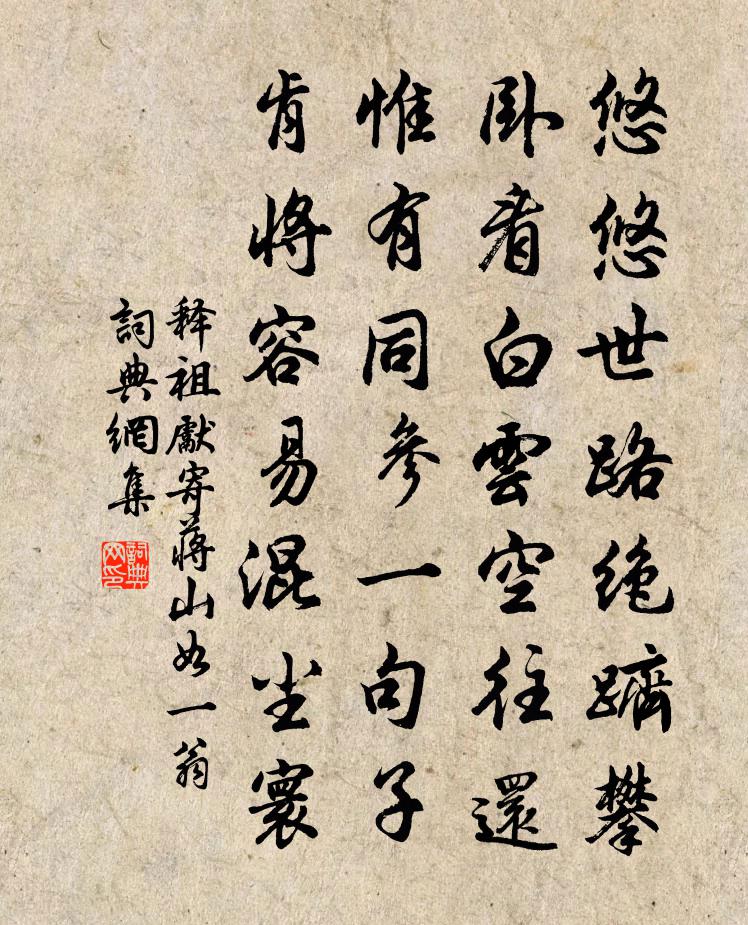 悠悠世路絶躋攀
卧看白雲空往還
惟有同參一句子
肯將容易混尘寰
释祖獻寄蔣山如一翁
詞典網集
詞典
网印